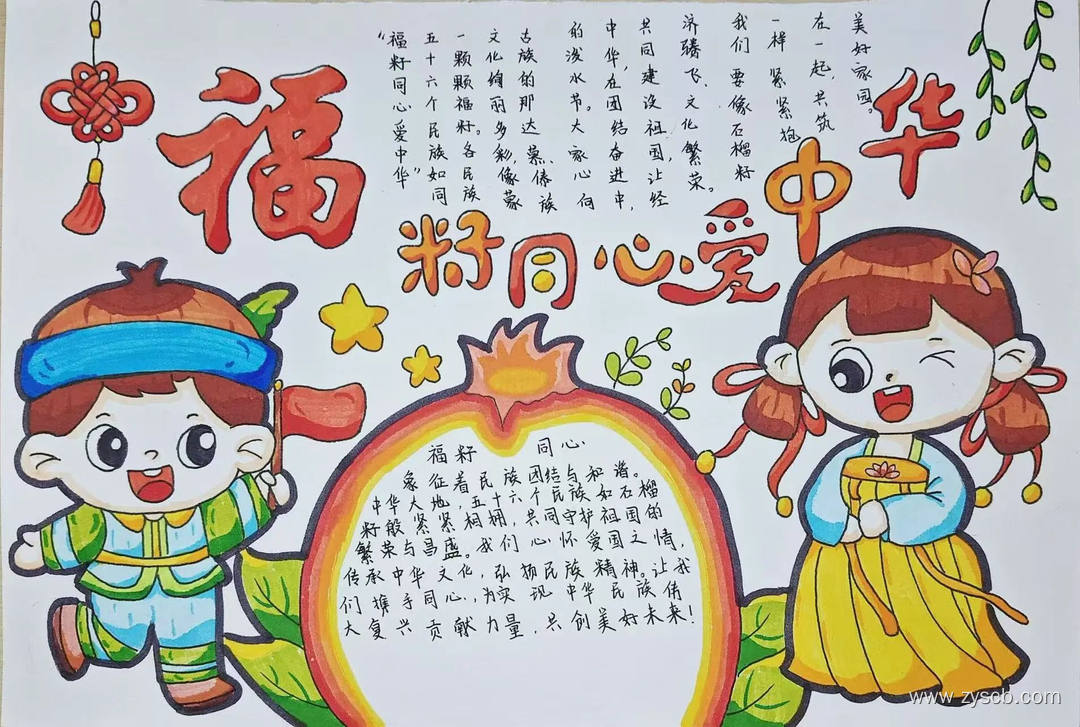 福籽同心爱中华
“福籽同心爱中华”
五十六个民族如同
一颗颗福籽。各民族
文化绚丽多彩,像蒙
古族的那达慕、傣族
的泼水节。大家心向
中华,在团结奋进中,
共同建设祖国,让经
济腾飞、文化繁荣。
我们要像石榴籽
一样紧紧抱
在一起,共筑
美好家园。
福籽 同心
象征着民族团结与和谐。
中华大地,五十六个民族如石榴
籽般紧紧相拥,共同守护祖国的
繁荣与昌盛。我们心怀爱国之情,
传承中华文化,弘扬民族精神。让我
们携手同心,为实现中华民族伟
大复兴贡献力量,共创美好未来!
www.zyscb.com